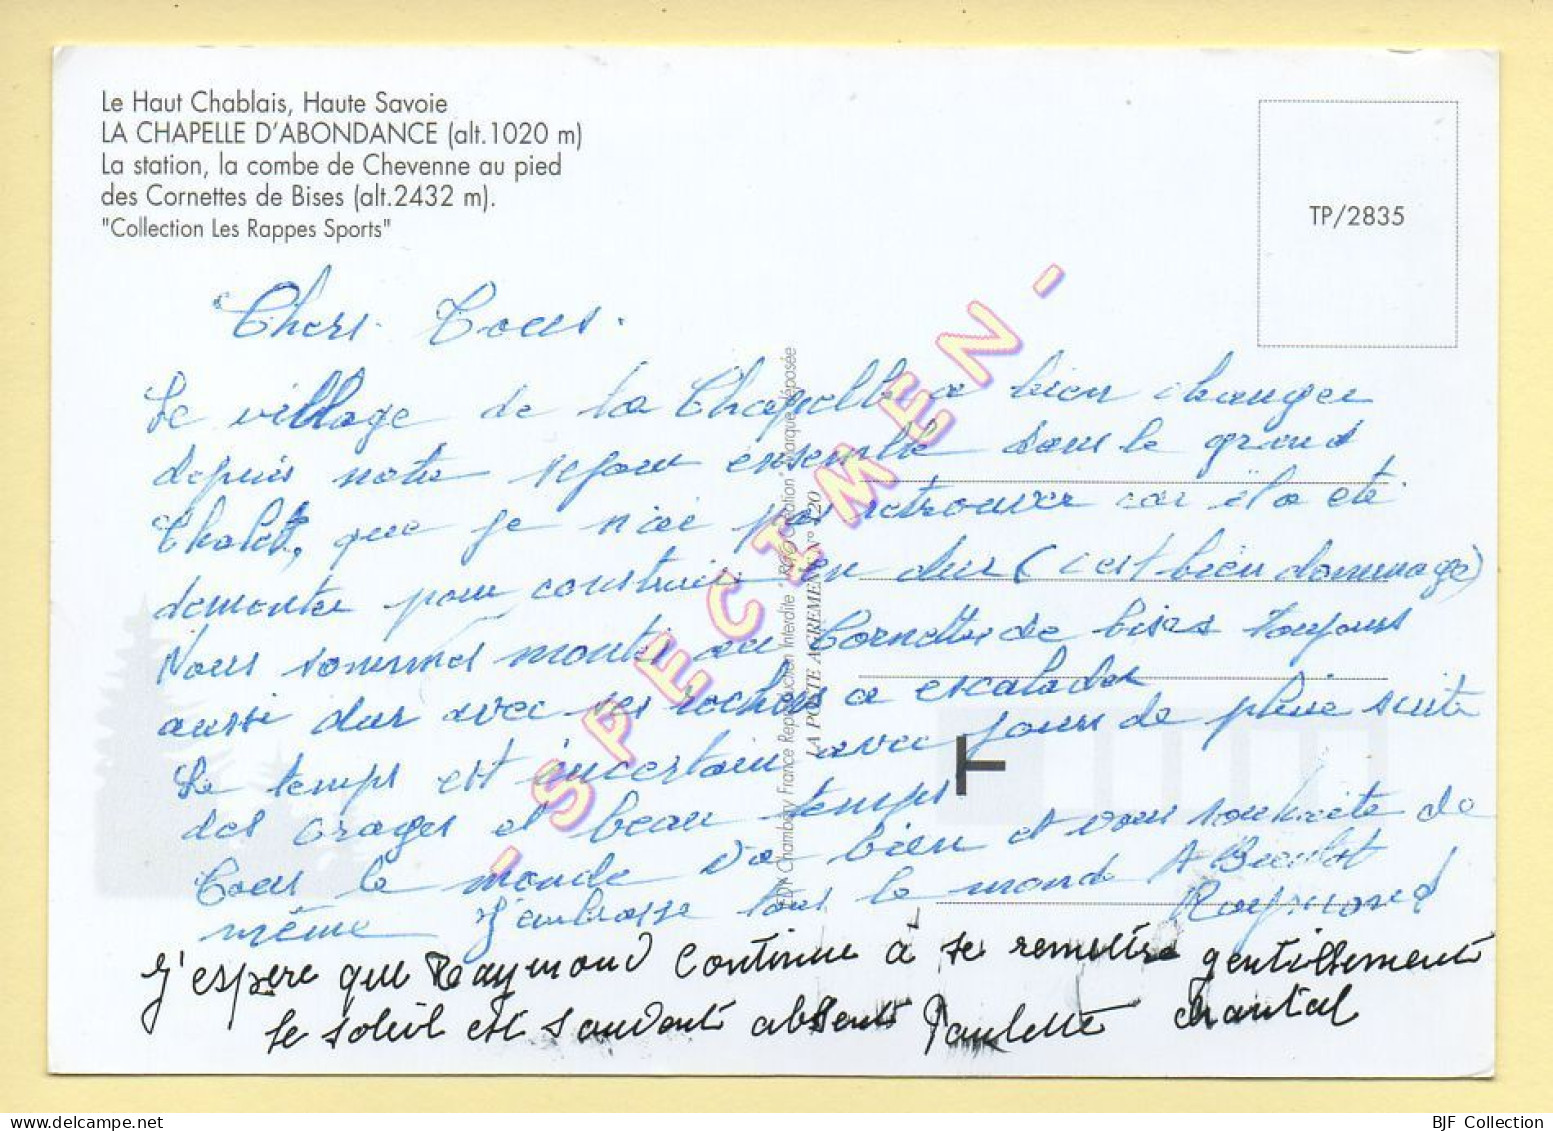 Le Haut Chablais, Haute Savoie
LA CHAPELLE D'ABONDANCE (alt.1020 m)
La station, la combe de Chevenne au pied
des Cornettes de Bises (alt.2432 m).
"Collection Les Rappes Sports"
TP/2835
Chers Tous.
Le village de la Chapelle a bien changer
depuis notre sejour ensemble dans le grand
Chalet, que je n'ai pas retrouver car il a été
demonter pour construire en dur (c'est bien dommage)
Nous sommes monter au Cornettes de bises toujours
aussi dur avec ses rochers a escalader
Le temps est incertain avec jours de pluie suite
des orages et beau temps
Tous le monde va bien et vous souhaite de
même J'embrasse tous le monde A Bientot
Raymond
J'espère que Raymond continue à se remettre gentillement
le soleil est souvent absent Paulette Chantal
EDY Chambéry France Reproduction Interdite
LA POSTE AGREMENT N°
- SPECIMEN -
T
BJF Collection